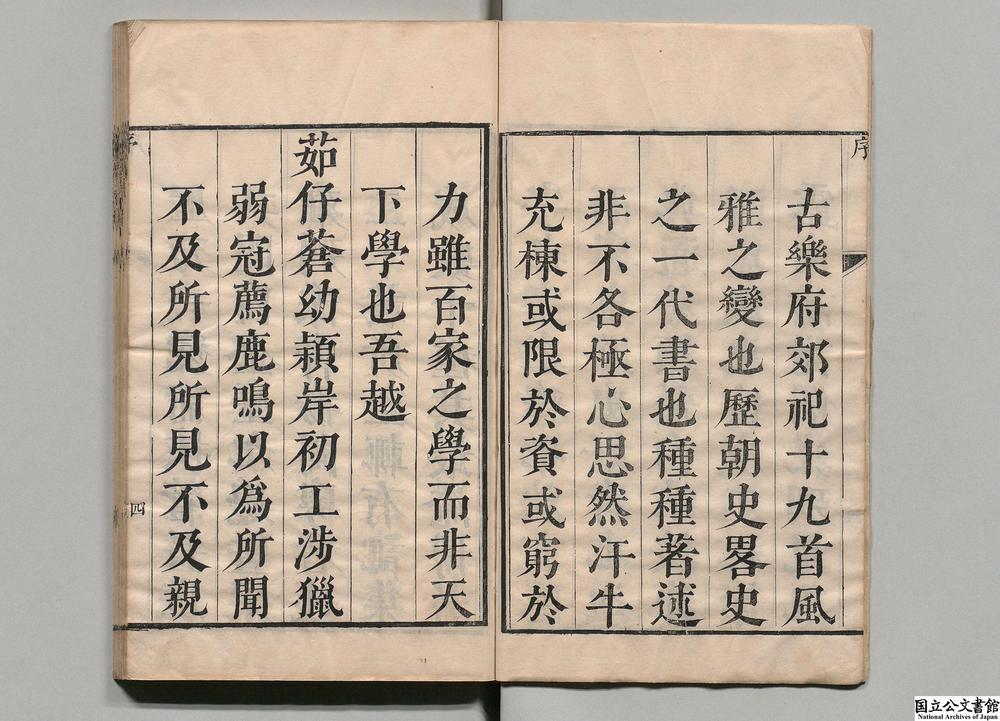 序
古樂府郊祀十九首風
雅之變也歷朝史畧史
之一代書也種種著述
非不各極心思然汗牛
充棟或限於資或窮於
力雖百家之學而非天
下學也吾越
茹仔蒼幼穎岸初工涉獵
弱冠薦鹿鳴以爲所聞
不及所見所見不及親
序
四
国立公文書館
National Archives of Japan